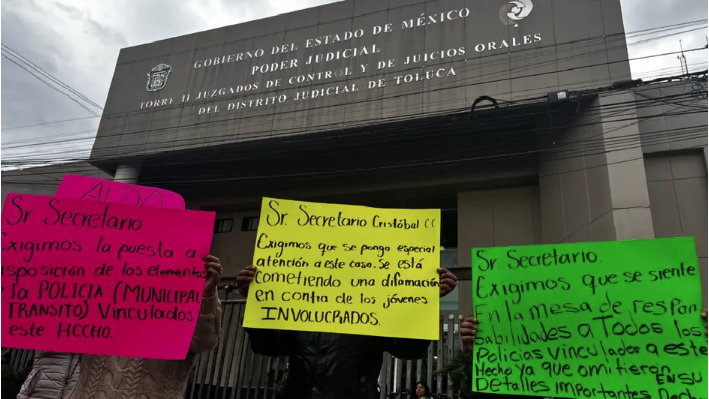 GOBIERNO DEL ESTADO DE MÉXICO
PODER JUDICIAL
TORRE II JUZGADOS DE CONTROL Y DE JUICIOS ORALES
DEL DISTRITO JUDICIAL DE TOLUCA
Sr Secretario
Exigimos la puesta a
disposición de los elementos
la POLICIA (MUNICIPAL
TRANSITO) Vinculados
este HECHO.
Sr. Secretario Cristóbal CC
Exigimos que se ponga especial
atención a este caso. Se está
cometiendo una difamación
en contra de los jóvenes
INVOLUCRADOS.
Sr. Secretario.
Exigimos que se siente
En la mesa de respon
sabilidades a Todos los
Policías vinculador a este
Hecho ya que omitieron EN SU
Detalles importantes